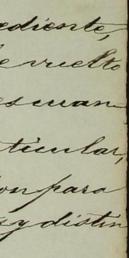 ediente,
e vuelto
escuan
ticular,
on para
s y distin